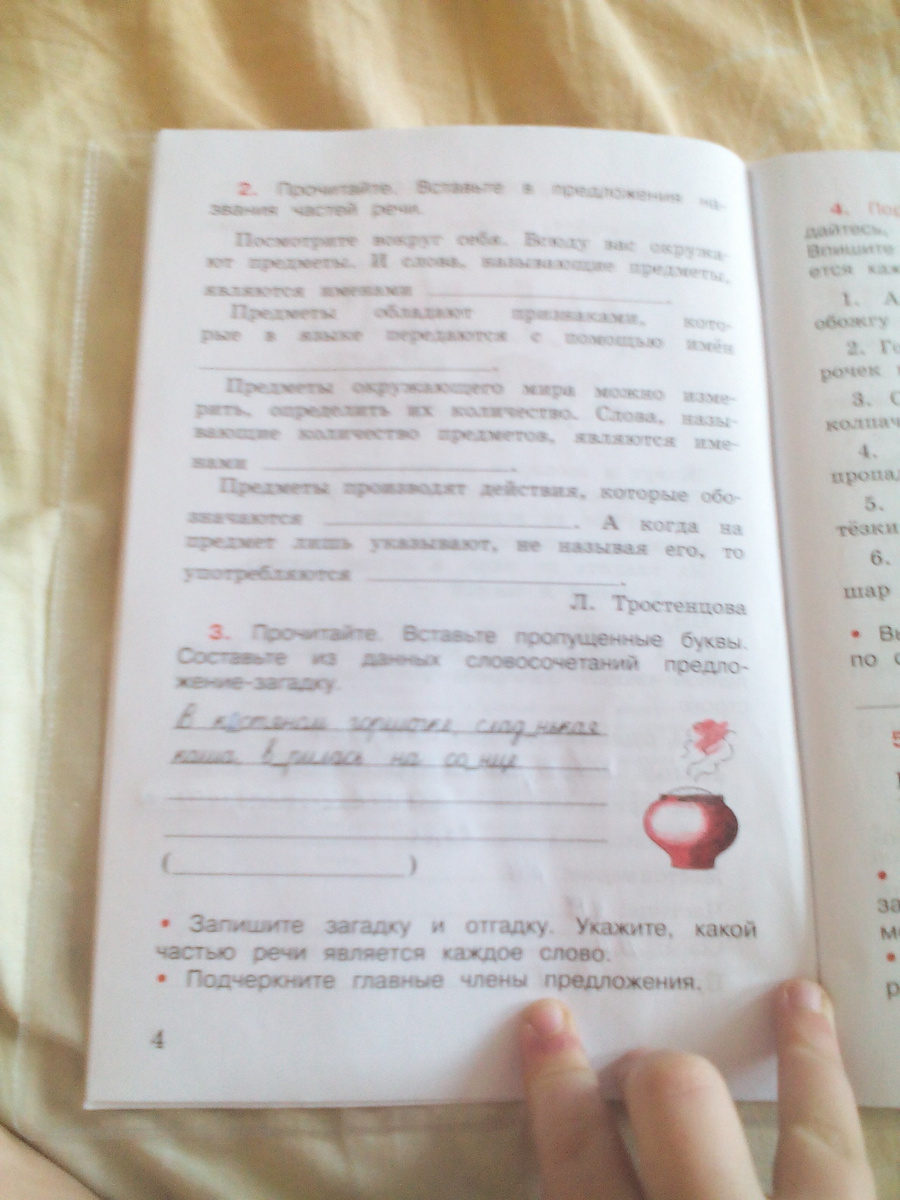 2. Прочитайте. Вставьте в предложения на-
звания частей речи.
Посмотрите вокруг себя. Всюду вас окружа-
ют предметы. И слова, называющие предметы,
являются именами
Предметы обладают признаками, кото-
рые в языке передаются с помощью имён
Предметы окружающего мира можно изме-
рить, определить их количество. Слова, назы-
вающие количество предметов, являются име-
нами
Предметы производят действия, которые обо-
значаются ____. А когда на
предмет лишь указывают, не называя его, то
употребляются ____.
Л. Тростенцова
3. Прочитайте. Вставьте пропущенные буквы.
Составьте из данных словосочетаний предло-
жение-загадку.
В костяном горшочке слад_нькая
каша в_рилась на со_нце
(____)
• Запишите загадку и отгадку. Укажите, какой
частью речи является каждое слово.
• Подчеркните главные члены предложения.
4
4.
дайтесь.
Впишите
ется
1. А
обожгу
2.
рочек
3.
колпач
4.
пропа
5.
тёзки
6.
шар
•
по с
5
•
за
•